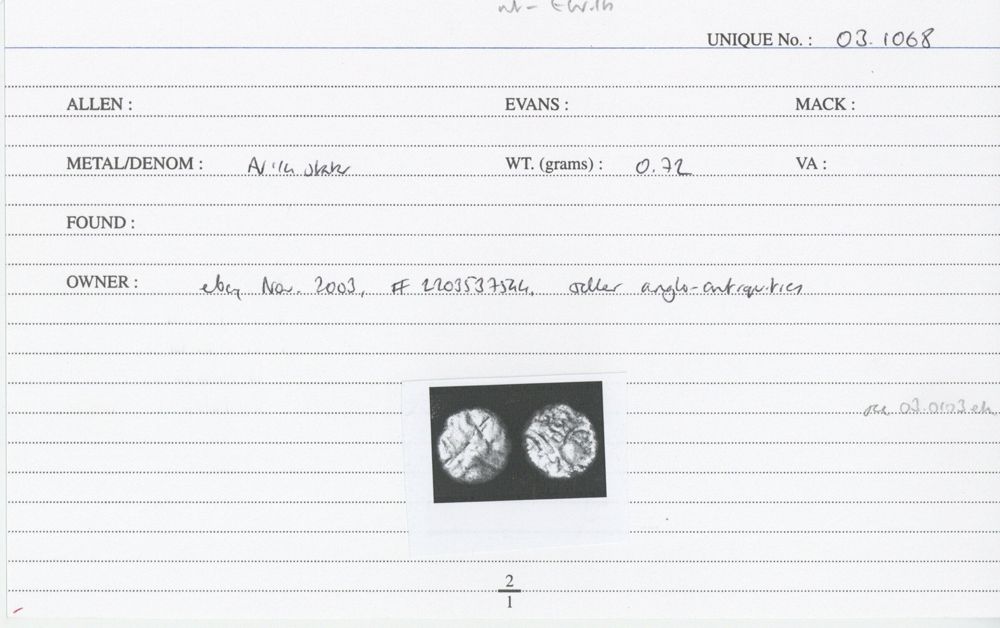 UNIQUE No. : 03.1068
ALLEN : EVANS : MACK :
METAL/DENOM : WT. (grams) : 0.72 VA :
FOUND :
OWNER : ebay Nov. 2003, # 2203537544, seller anglo-antiquities
see 03.0103
2
1